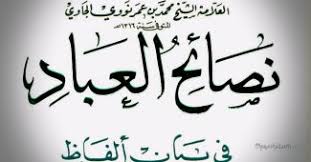 العلامة الشيخ محمد بن عمر نووي الجاوي
نصائح العباد
في بيان ألفاظ